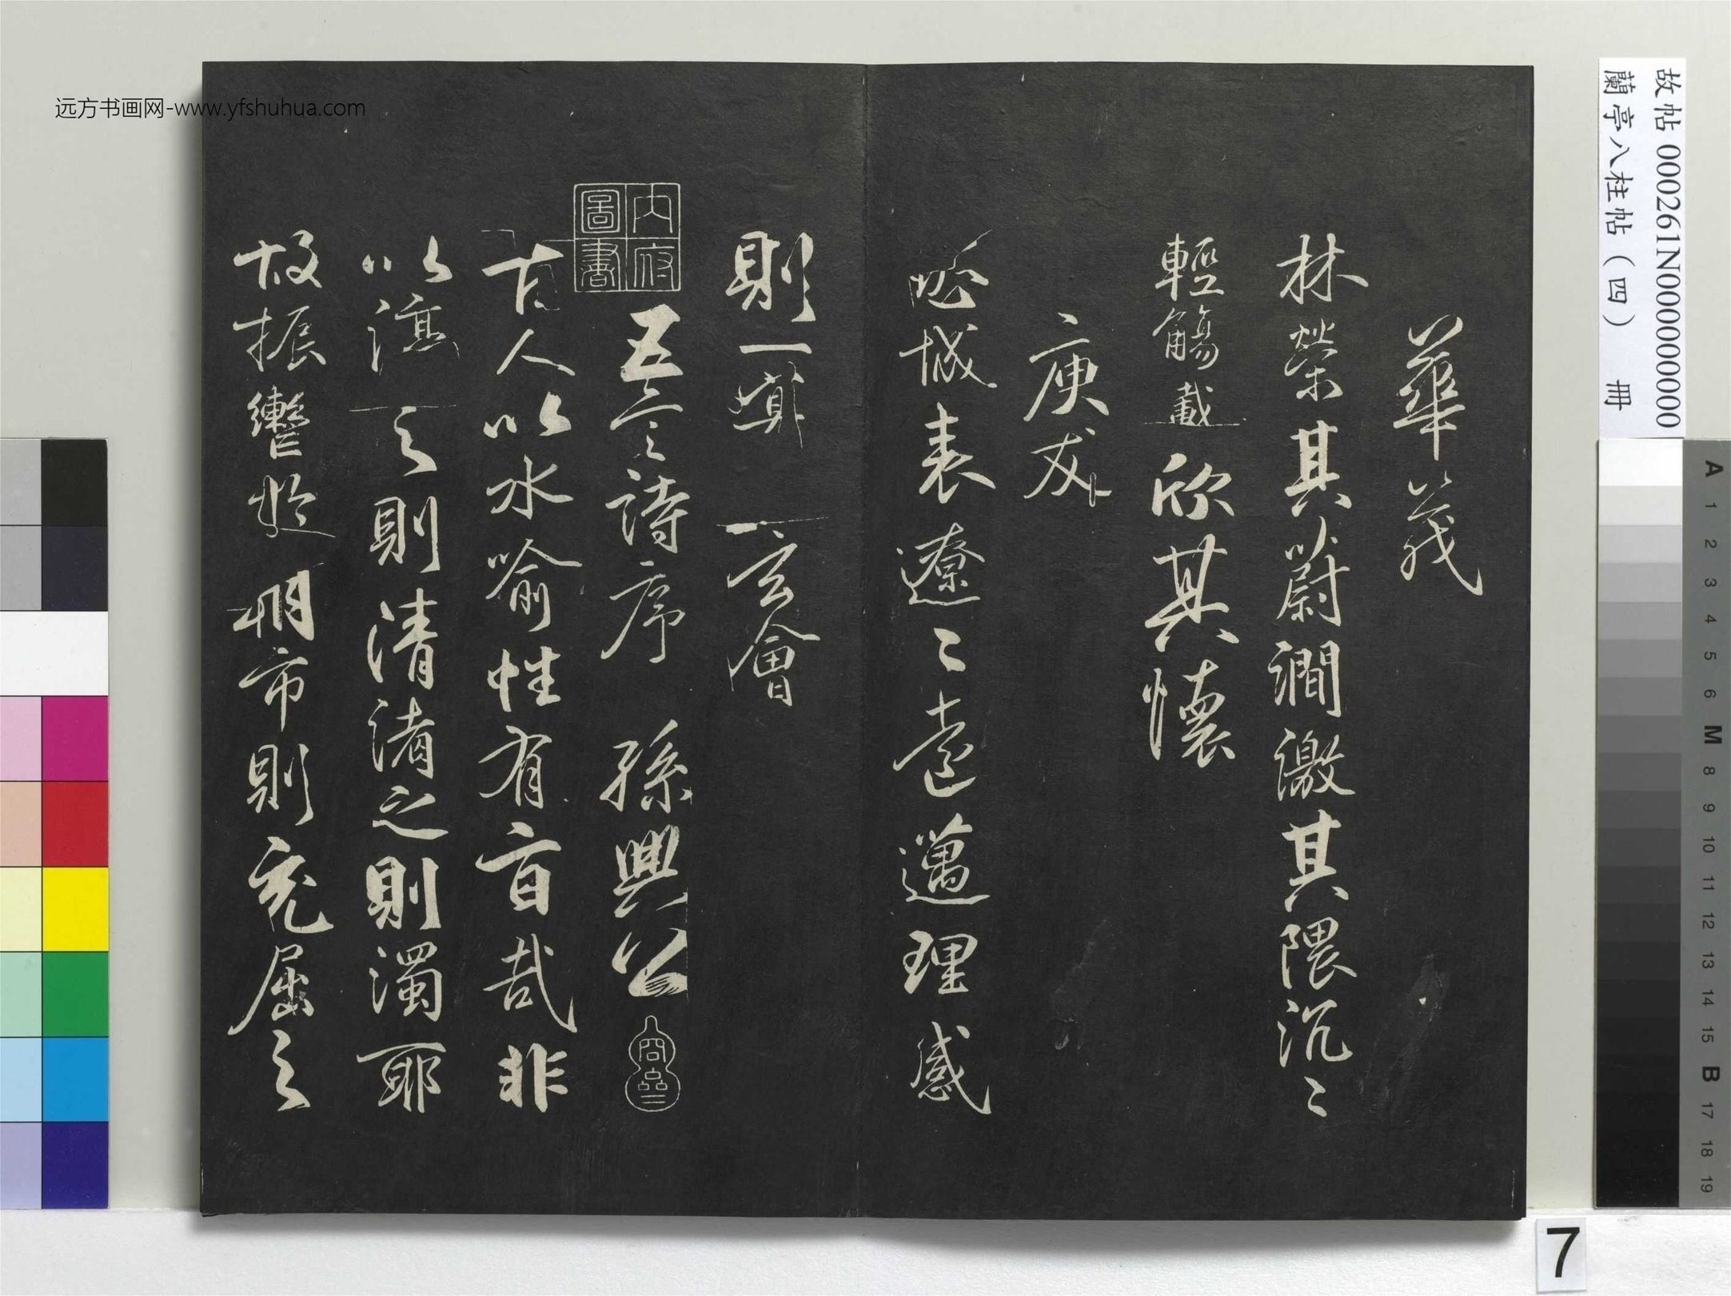 华茂
林榮其蔚澗激其隈沉〻
輕觴載欣其懷
庾友
域表遼〻遠邁理感
則一冥玄會
五言詩序 孫興公
古人以水喻性有旨哉非
以渟之則清淆之則濁耶
故振轡於朝市則充屈之
內府圖書
故帖 000261N000000000
蘭亭八柱帖（四） 冊
远方书画网-www.yfshuhua.com
A 1 2 3 4 5 6 M 8 9 10 11 12 13 14 15 B 17 18 19
7